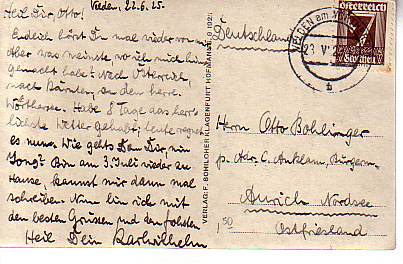 Velden, 22.6.25.
Heil Dir, Otto!
Endlich hörst Du mal wieder von mir.
Aber was meinste wo ich mich hin
gemacht habe? Nach Österreich,
nach Kärnten, an den herrl.
Wörthersee. Habe 8 Tage das herr-
lichste Wetter gehabt, heute regnet
es nur. Wie gehts Den Dir, mein
Jong? Bin am 3. Juli wieder zu
Hause, kannst mir dann mal
schreiben. Nun bin ich mit
den besten Grüssen und den
Heil Dein Karlwilhelm
VERLAG: F. BOHILCHER KLAGENFURT HOFMANSG. 9 1921
Deutschland
Österreich
7
Groschen
VELDEN am
23 VI 25
b
Herrn Otto Bohlinger
p. Adr. C. Anklam, Bürgerm.
Aurich Nordsee
Ostfriesland
150